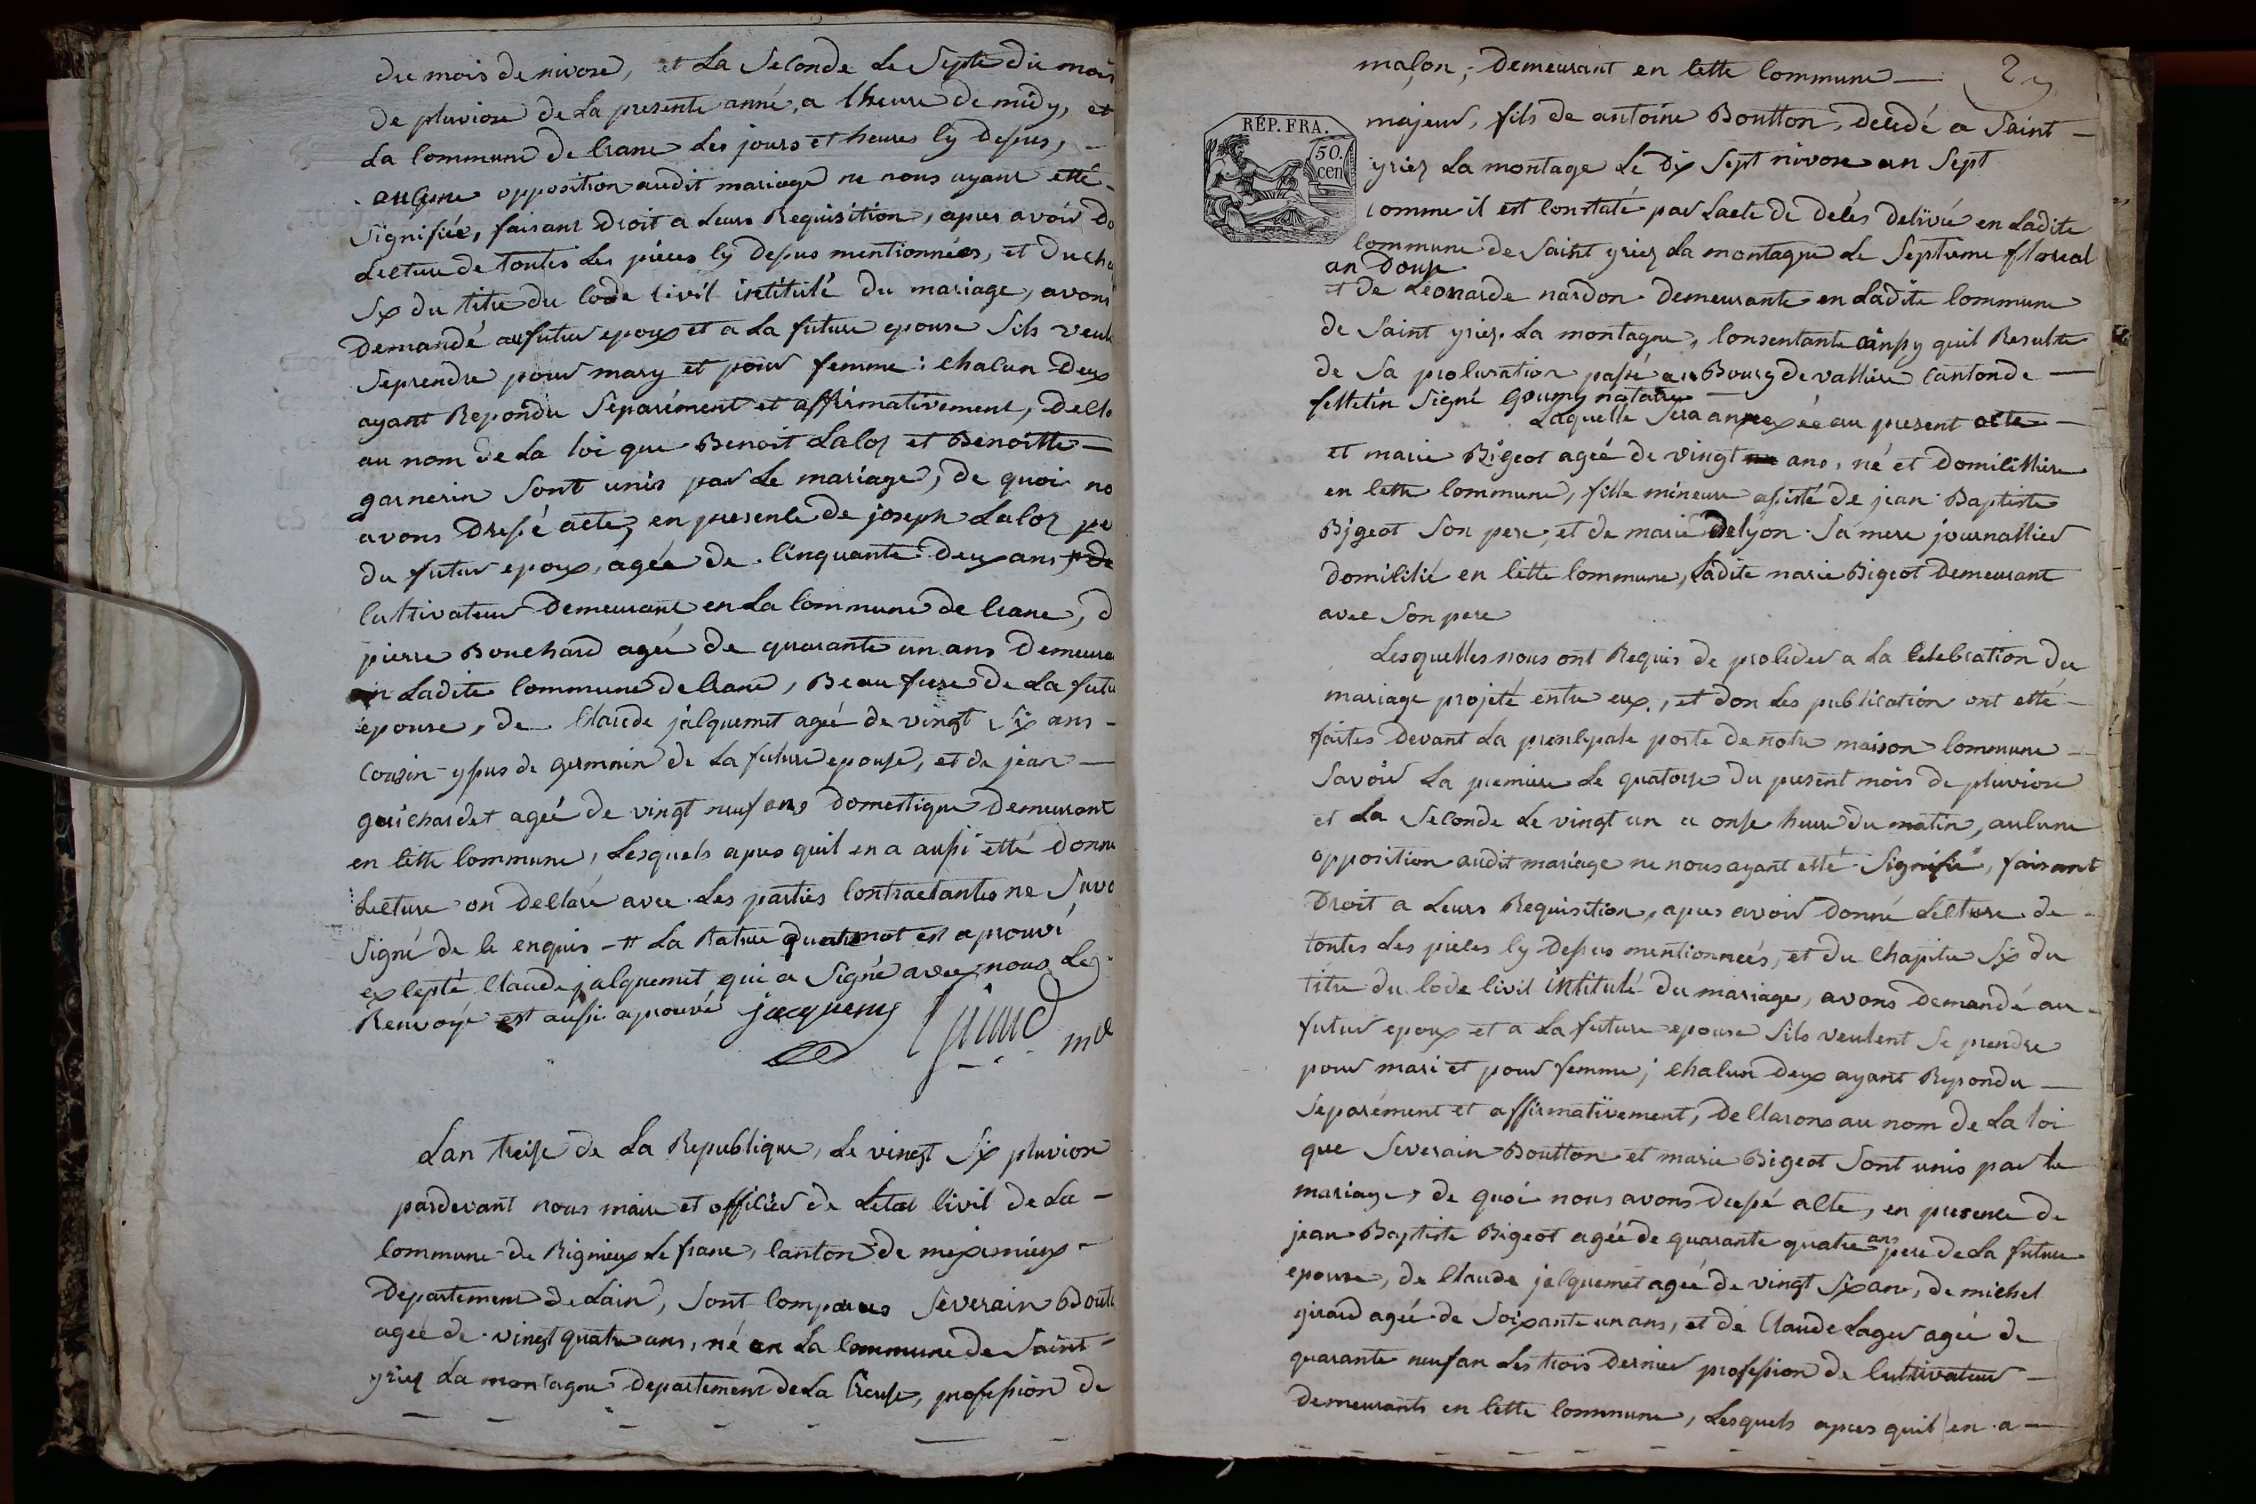 du mois de nivose, et La Seconde Le Septe du mois
de pluviose de La presente anné, a lheure de midy, et
La Commune de Crane Les jours et heures Cy Desus,
aucune opposition audit mariage ne nous ayant etté
Signifiée, faisant Droit a Leurs Requisition, apres avoir Do
Lecture de toutes Les pieces Cy Desus mentionnées, et Du cha
Six du titre du Code Civil intitulé Du mariage, avons
Demandé au futur epoux et a La future epouse Sils veule
Se prendre pour mary et pour femme : Chacun Deux
ayant Repondu Separément et affirmativement, Decla
au nom de La loi que Benoit Laloz et Benoitte
garnerin Sont unis par Le mariage, de quoi no
avons Dressé acte, en presence de joseph Laloz pe
du futur epoux, agée de Cinquante Deux ans
Cultivateur Demeurant en La Commune de Crane, d
pierre Bouchard agée de quarante un ans Demeura
en Ladite Commune de Crane, Beau frere de La futu
epouse, de Claude jacquemet agée de vingt Six ans
Cousin ypus de germain de La future epouse, et de jean
guichardet agée de vingt neuf ans Domestique Demeurant
en Cette Commune, Lesquels apres quil en a aussi etté Donné
Lecture on Declaré avec Les parties Contractantes ne Savo
Signé de Ce enquis - # La Rature Quatr mot est aprouvé
excepté Claude jacquemet qui a Signé avec nous Le
Renvoyé est aussi aprouvé jacquemet girard m.e
Lan treise de La Republique, Le vingt Six pluviose
pardevant nous maire et officier de Letat Civil de La
Commune de Rignieux Le franc, Canton de meximieux
Departement de Lain, Sont Comparus Severain Boutt
agée de vingt quatre ans, né en La Commune de Saint
yriez La montagne Departement de La Creuse, profession de
maçon ; Demeurant en Cette Commune
RÉP. FRA.
50. cen
majeur, fils de antoine Boutton, decedé a Saint
yriez La montage Le Dix Sept nivose an Sept
Comme il est Constaté par Lacte de décés delivré en Ladite
Commune de Saint yriez La montagne Le Septieme floreal
an Douse
et de Léonarde nardon Demeurante en Ladite Commune
de Saint yriez La montagne, Consentante ainsy quil Resulte
de Sa procuration passé au Bourg de valliere Cantonde
felletin Signé Goumy notaire
Laquelle Sera annexée au present acte
et marie Bigeot agée de vingt ans, né et Domiciliere
en Cette Commune, fille mineure assisté de jean Baptiste
Bigeot Son pere, et de marie Delyon Sa mere journallier
Domicilié en Cette Commune, Ladite marie Bigeot Demeurant
avec Son pere
Lesquelles nous ont Requis de proceder a La Celebration du
mariage projeté entre eux, et don Les publication ont etté
faites Devant La princlepale porte de notre maison Commune
Savoir La premiere Le quatorse du present mois de pluviose
et La Seconde Le vingt un a onse heure du matin, aucune
opposition audit mariage ne nous ayant etté Signifié, faisant
Droit a Leurs Requisition, apres avoir Donné Lecture de
toutes Les pieces Cy Desus mentionneés, et du Chapitre Six du
titre du Code Civil intitulé Du mariage, avons Demandé au
futur epoux et a La future epouse Sils veulent Se prendre
pour mari et pour femme ; Chacun Deux ayant Repondu
Separément et affirmativement, Declarons au nom de La loi
que Severain Boutton et marie Bigeot Sont unis par le
mariage, de quoi nous avons dressé acte, en presence de
jean Baptiste Bigeot agée de quarante quatre ans pere de La future
epouse, de Claude jacquemet agée de vingt Six ans, de michel
girard agée de Soixante un ans, et de Claude Lager agée de
quarante neuf an Les trois Dernier profession de Cultivateur
Demeurants en Cette Commune, Lesquels apres quil en a